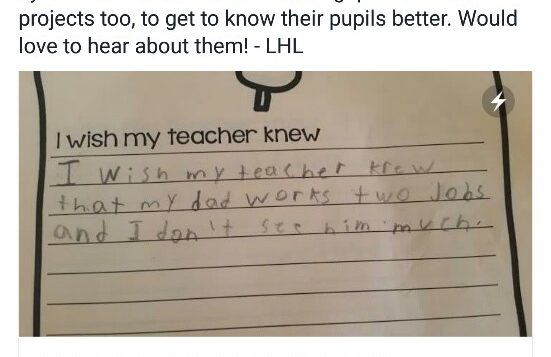 projects too, to get to know their pupils better. Would
love to hear about them! - LHL
I wish my teacher knew
I wish my teacher krew
that my dad works two Jobs
and I don't see him much.